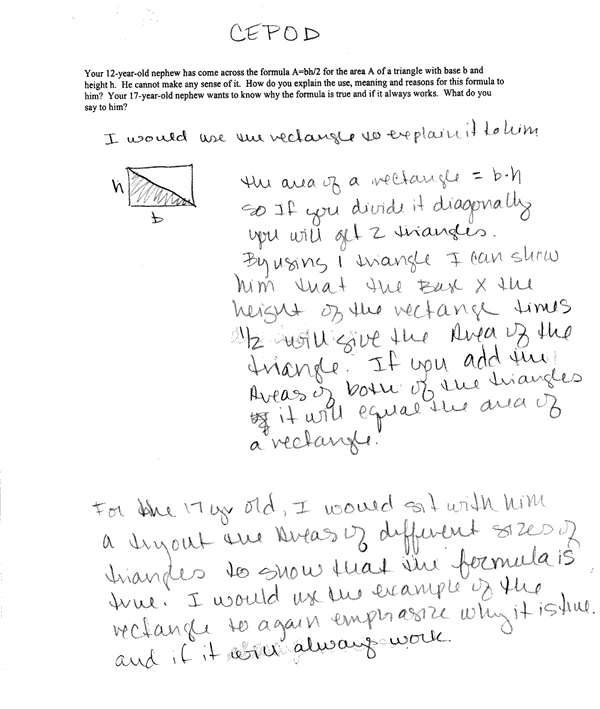 CEPOD
Your 12-year-old nephew has come across the formula A=bh/2 for the area A of a triangle with base b and
height h. He cannot make any sense of it. How do you explain the use, meaning and reasons for this formula to
him? Your 17-year-old nephew wants to know why the formula is true and if it always works. What do you
say to him?
I would use the rectangle to explain it to him
h
b
the area of a rectangle = b·h
so If you divide it diagonally
you will get 2 triangles.
By using 1 triangle I can show
him that the Base X the
height of the rectange times
1/2 will give the Area of the
triangle. If you add the
Areas of both of the triangles
it will equal the area of
a rectangle.
For the 17 yr old, I would sit with him
a tryout the Areas of different sizes of
triangles to show that the formula is
true. I would use the example of the
rectangle to again emphasize why it is true.
and if it will always work.